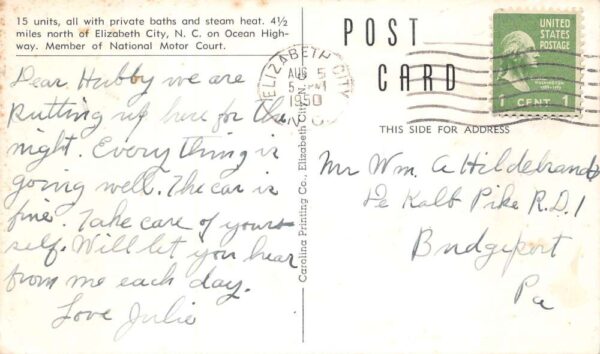 15 units, all with private baths and steam heat. 4½
miles north of Elizabeth City, N. C. on Ocean High-
way. Member of National Motor Court.
Dear Hubby we are
Putting up here for the
night. Everything is
going well. The car is
fine. Take care of yours
self. Will let you hear
from me each day.
Love Julie
Carolina Printing Co., Elizabeth City, N.
ELIZABETH CITY
AUG 5
PM
1950
POST
CARD
UNITED
STATES
POSTAGE
WASHINGTON
1 CENT 1
THIS SIDE FOR ADDRESS
Mr Wm. A Hildebrand
De Kalb Pike R.D.1
Bridgeport
Pa